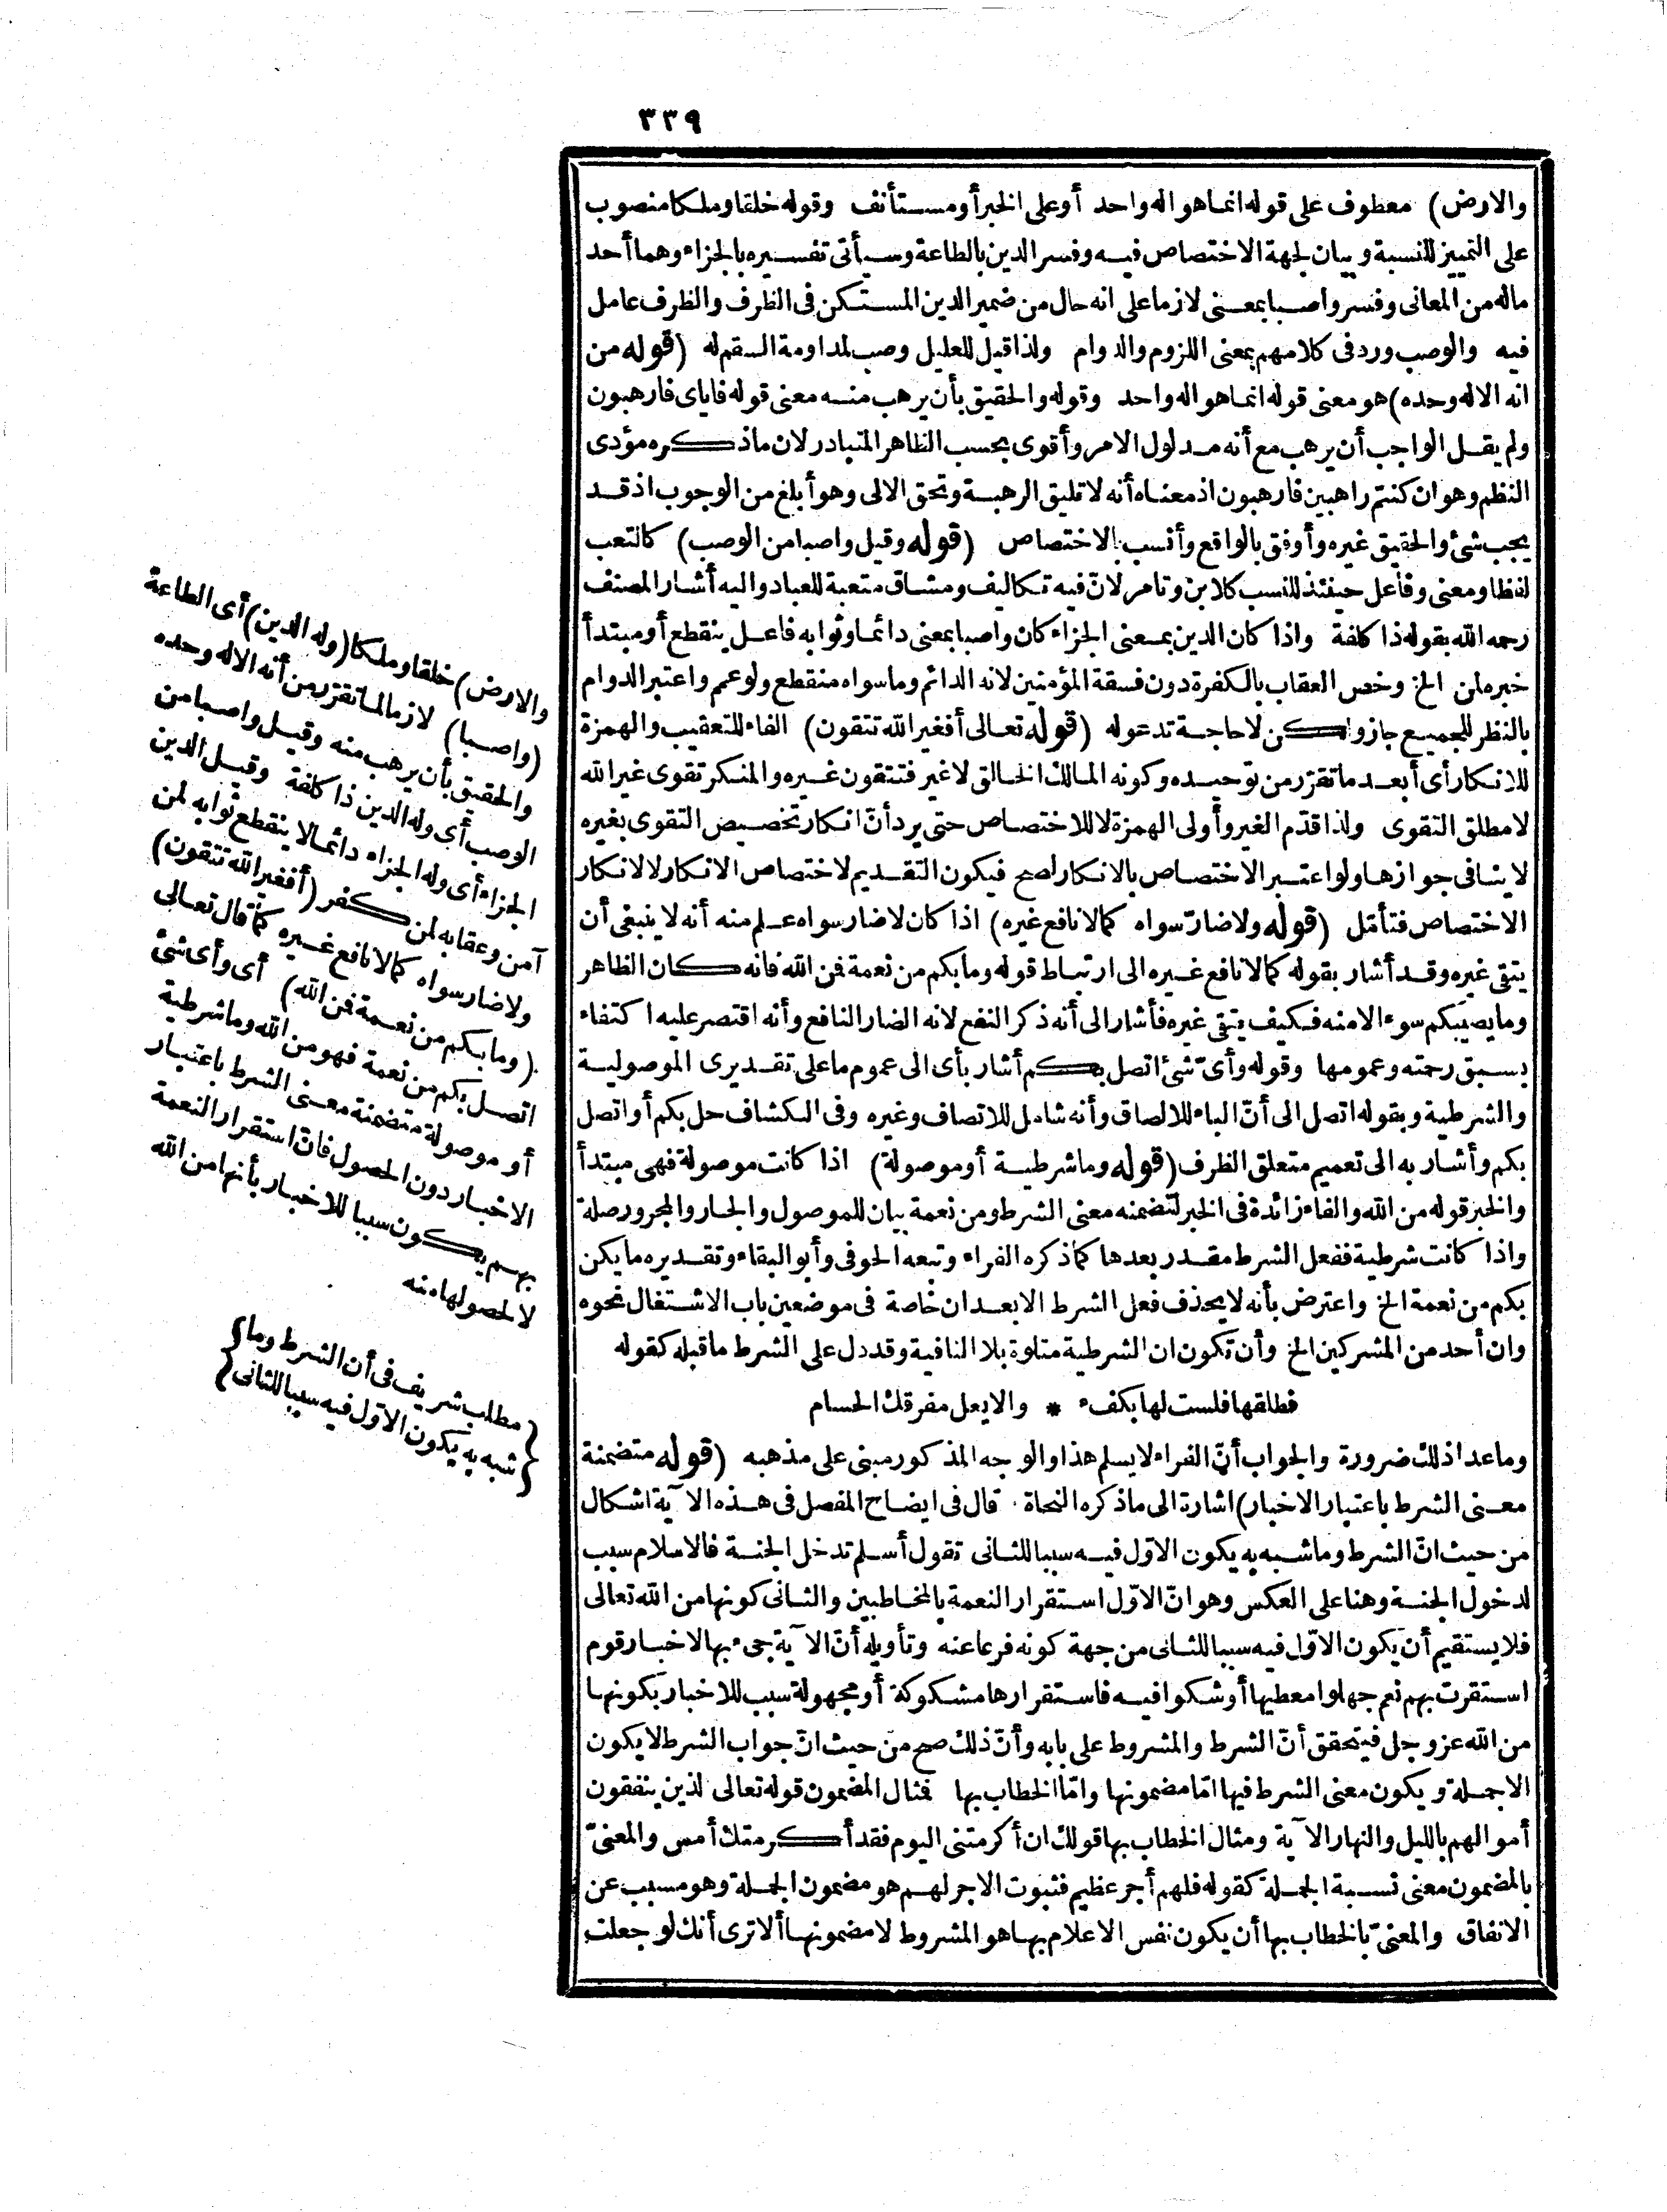 ٣٣٩
والارض) معطوف على قوله انما هو اله واحد أو على الخبر أو مستأنف وقوله خلقا وملكا منصوب
على التمييز للنسبة وبيان لجهة الاختصاص فيه وفسر الدين بالطاعة وسيأتى تفسيره بالجزاء وهما أحد
ماله من المعانى وفسر واصبا بمعنى لازما على انه حال من ضمير الدين المستكن فى الظرف والظرف عامل
فيه والوصب ورد فى كلامهم بمعنى اللزوم والدوام ولذا قيل للعليل وصب لمداومة السقم له (قوله من
انه الاله وحده) هو معنى قوله انما هو اله واحد وقوله والحقيق بأن يرهب منه معنى قوله فاياى فارهبون
ولم يقل الواجب أن يرهب مع أنه مدلول الامر وأقوى بحسب الظاهر المتبادر لان ما ذكره مؤدى
النظم وهو ان كنتم راهبين فارهبون اذ معناه أنه لا تليق الرهبة وتحق الالى وهو أبلغ من الوجوب اذ قد
يجب شئ والحقيق غيره وأوفق بالواقع وأنسب بالاختصاص (قوله وقيل واصبا من الوصب) كالتعب
لفظا ومعنى وفاعل حينئذ للنسب كلابن وتامر لانّ فيه تكاليف ومشاق متعبة للعباد واليه أشار المصنف
رحمه الله بقوله ذا كلفة واذا كان الدين بمعنى الجزاء كان واصبا بمعنى دائما وثوابه فاعل ينقطع أو مبتدأ
خبره لمن الخ وخص العقاب بالكفرة دون فسقة المؤمنين لانه الدائم وما سواه منقطع ولو عمم واعتبر الدوام
بالنظر للجميع جاز ولكن لا حاجة تدعو له (قوله تعالى أفغير الله تتقون) الفاء للتعقيب والهمزة
للانكار أى أبعد ما تقرّر من توحيده وكونه المالك الخالق لا غير فتتقون غيره والمنكر تقوى غير الله
لا مطلق التقوى ولذا قدّم الغير وأولى الهمزة لا للاختصاص حتى يرد أنّ انكار تخصيص التقوى بغيره
لا ينافى جوازها ولو اعتبر الاختصاص بالانكار لصح فيكون التقديم لاختصاص الانكار لا لانكار
الاختصاص فتأمّل (قوله ولا ضارّ سواه كما لا نافع غيره) اذا كان لا ضار سواه علم منه أنه لا ينبغى أن
يتقى غيره وقد أشار بقوله كما لا نافع غيره الى ارتباط قوله وما بكم من نعمة فمن الله فانه كان الظاهر
وما يصيبكم سوء الا منه فكيف يتقى غيره فأشار الى أنه ذكر النفع لانه الضار النافع وأنه اقتصر عليه اكتفاء
بسبق رحمته وعمومها وقوله وأىّ شئ اتصل بكم أشار بأى الى عموم ما على تقديرى الموصولية
والشرطية وبقوله اتصل الى أنّ الباء للالصاق وأنه شامل للاتصاف وغيره وفى الكشاف حل بكم أو اتصل
بكم وأشار به الى تعميم متعلق الظرف (قوله وما شرطية أو موصولة) اذا كانت موصولة فهى مبتدأ
والخبر قوله من الله والفاء زائدة فى الخبر لتضمنه معنى الشرط ومن نعمة بيان للموصول والجار والمجرور صلة
واذا كانت شرطية ففعل الشرط مقدر بعدها كما ذكره الفراء وتبعه الحوفى وأبو البقاء وتقديره ما يكن
بكم من نعمة الخ واعترض بأنه لا يحذف فعل الشرط الا بعد ان خاصة فى موضعين باب الاشتغال نحوه
وان أحد من المشركين الخ وأن تكون ان الشرطية متلوة بلا النافية وقد دل على الشرط ما قبله كقوله
فطلقها فلست لها بكفء * والا يعل مفرقك الحسام
وما عدا ذلك ضرورة والجواب أنّ الفراء لا يسلم هذا والوجه المذكور مبنى على مذهبه (قوله متضمنة
معنى الشرط باعتبار الاخبار) اشارة الى ما ذكره النحاة قال فى ايضاح المفصل فى هذه الآية اشكال
من حيث انّ الشرط وما شبه به يكون الاوّل فيه سببا للثانى تقول أسلم تدخل الجنة فالاسلام سبب
لدخول الجنة وهنا على العكس وهو انّ الاوّل استقرار النعمة بالمخاطبين والثانى كونها من الله تعالى
فلا يستقيم أن يكون الاوّل فيه سببا للثانى من جهة كونه فرعا عنه وتأويله أنّ الآية جىء بها لاخبار قوم
استقرت بهم نعم جهلوا معطيها أو شكوا فيه فاستقرارها مشكوكة أو مجهولة سبب للاخبار بكونها
من الله عز وجل فيتحقق أنّ الشرط والمشروط على بابه وأنّ ذلك صح من حيث انّ جواب الشرط لا يكون
الا جملة ويكون معنى الشرط فيها امّا مضمونها وامّا الخطاب بها فمثال المضمون قوله تعالى لذين ينفقون
أموالهم بالليل والنهار الآية ومثال الخطاب بها قولك ان أكرمتنى اليوم فقد أكرمتك أمس والمعنىّ
بالمضمون معنى نسبة الجملة كقوله فلهم أجر عظيم فثبوت الاجر لهم هو مضمون الجملة وهو مسبب عن
الانفاق والمعنىّ بالخطاب بها أن يكون نفس الاعلام بها هو المشروط لا مضمونها ألا ترى أنك لو جعلت
والارض) خلقا وملكا (وله الدين) أى الطاعة
(واصبا) لازما لما تقرّر من أنه الاله وحده
والحقيق بأن يرهب منه وقيل واصبا من
الوصب أى وله الدين ذا كلفة وقيل الدين
الجزاء أى وله الجزاء دائما لا ينقطع ثوابه لمن
آمن وعقابه لمن كفر (أفغير الله تتقون)
ولا ضار سواه كما لا نافع غيره كما قال تعالى
(وما بكم من نعمة فمن الله) أى وأى شئ
اتصل بكم من نعمة فهو من الله وما شرطية
أو موصولة متضمنة معنى الشرط باعتبار
الاخبار دون الحصول فانّ استقرار النعمة
بهم يكون سببا للاخبار بأنها من الله
لا لحصولها منه
مطلب شريف فى أن الشرط وما
شبه به يكون الاوّل فيه سببا للثانى